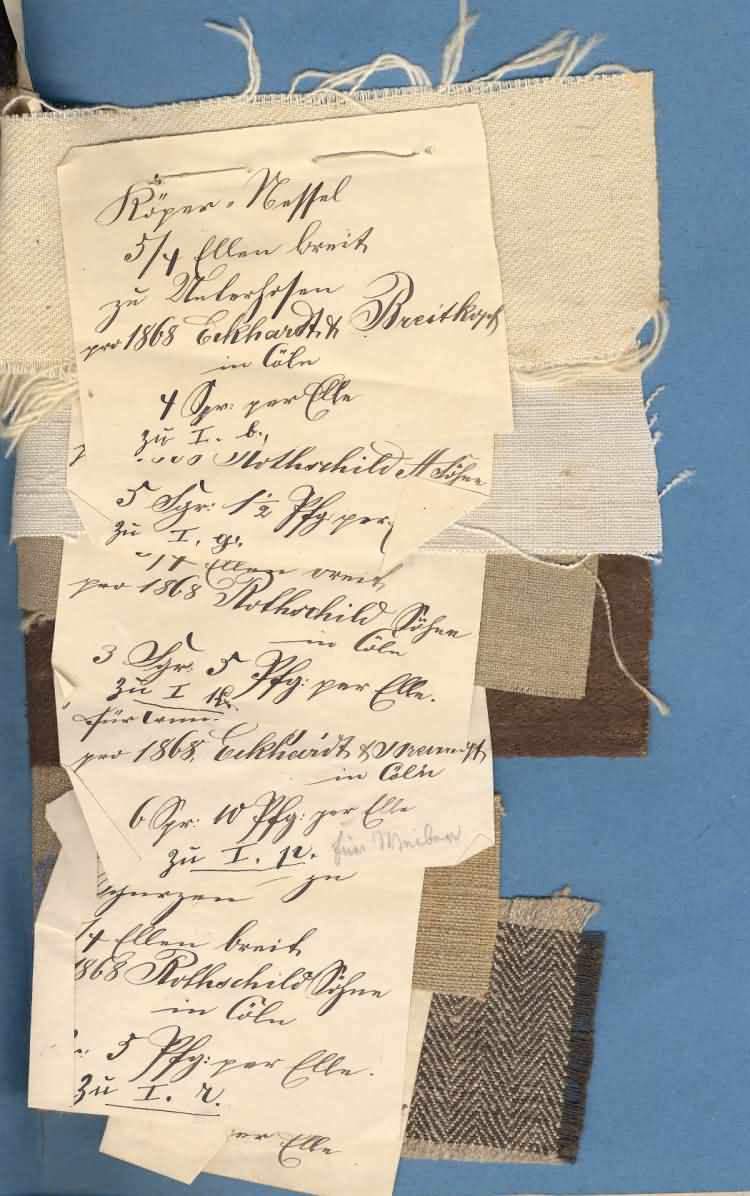 Köper-Nessel
5/4 Ellen breit
zu Unterhosen
pro 1868 Eckhardt & Breitkopf
in Cöln
4 Sgr: per Elle
zu I. b.
Rothschild Söhne
5 Sgr: 1½ Pfg per
zu I. g.
/4 Ellen breit
pro 1868 Rothschild Söhne
in Cöln
3 Sgr: 5 Pfg: per Elle.
zu I
für
pro 1868 Eckhardt &
in Cöln
6 Sgr: 10 Pfg: per Elle
zu I. p. für Weiber
zu
/4 Ellen breit
1868 Rothschild Söhne
in Cöln
5 Pfg: per Elle.
zu I. r.
er Elle